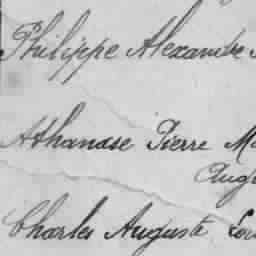 Philippe Alexandre
Athanase Pierre
Charles Auguste